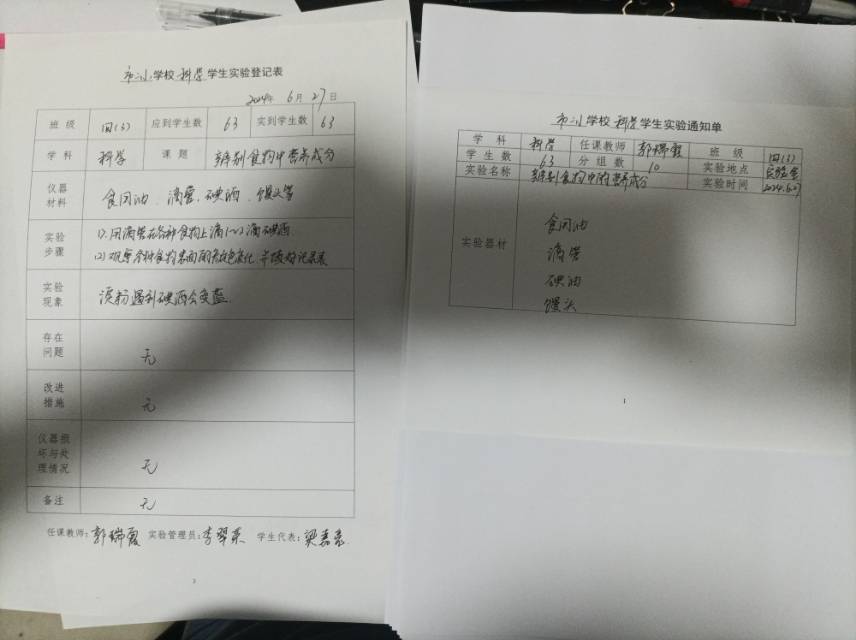 市二小学校科学学生实验登记表
2024年 6月 27日
班 级 四(3) 应到学生数 63 实到学生数 63
学 科 科学 课 题 辨别食物中营养成分
仪器材料 食用油、滴管、碘酒、馒头等
实验步骤 (1).用滴管在各种食物上滴1~2滴碘酒.
(2)观察各种食物表面的颜色变化,并做好记录表
实验现象 淀粉遇到碘酒会变蓝.
存在问题 无
改进措施 无
仪器损坏与处理情况 无
备注 无
任课教师:郭瑞霞 实验管理员:李翠 学生代表:梁
2
市二小学校科学学生实验通知单
学 科 科学 任课教师 郭瑞霞 班 级 四(3)
学 生 数 63 分 组 数 10 实验地点 实验室
实验名称 辨别食物中的营养成分 实验时间 2024.6.27
实验器材 食用油
滴管
碘油
馒头
1